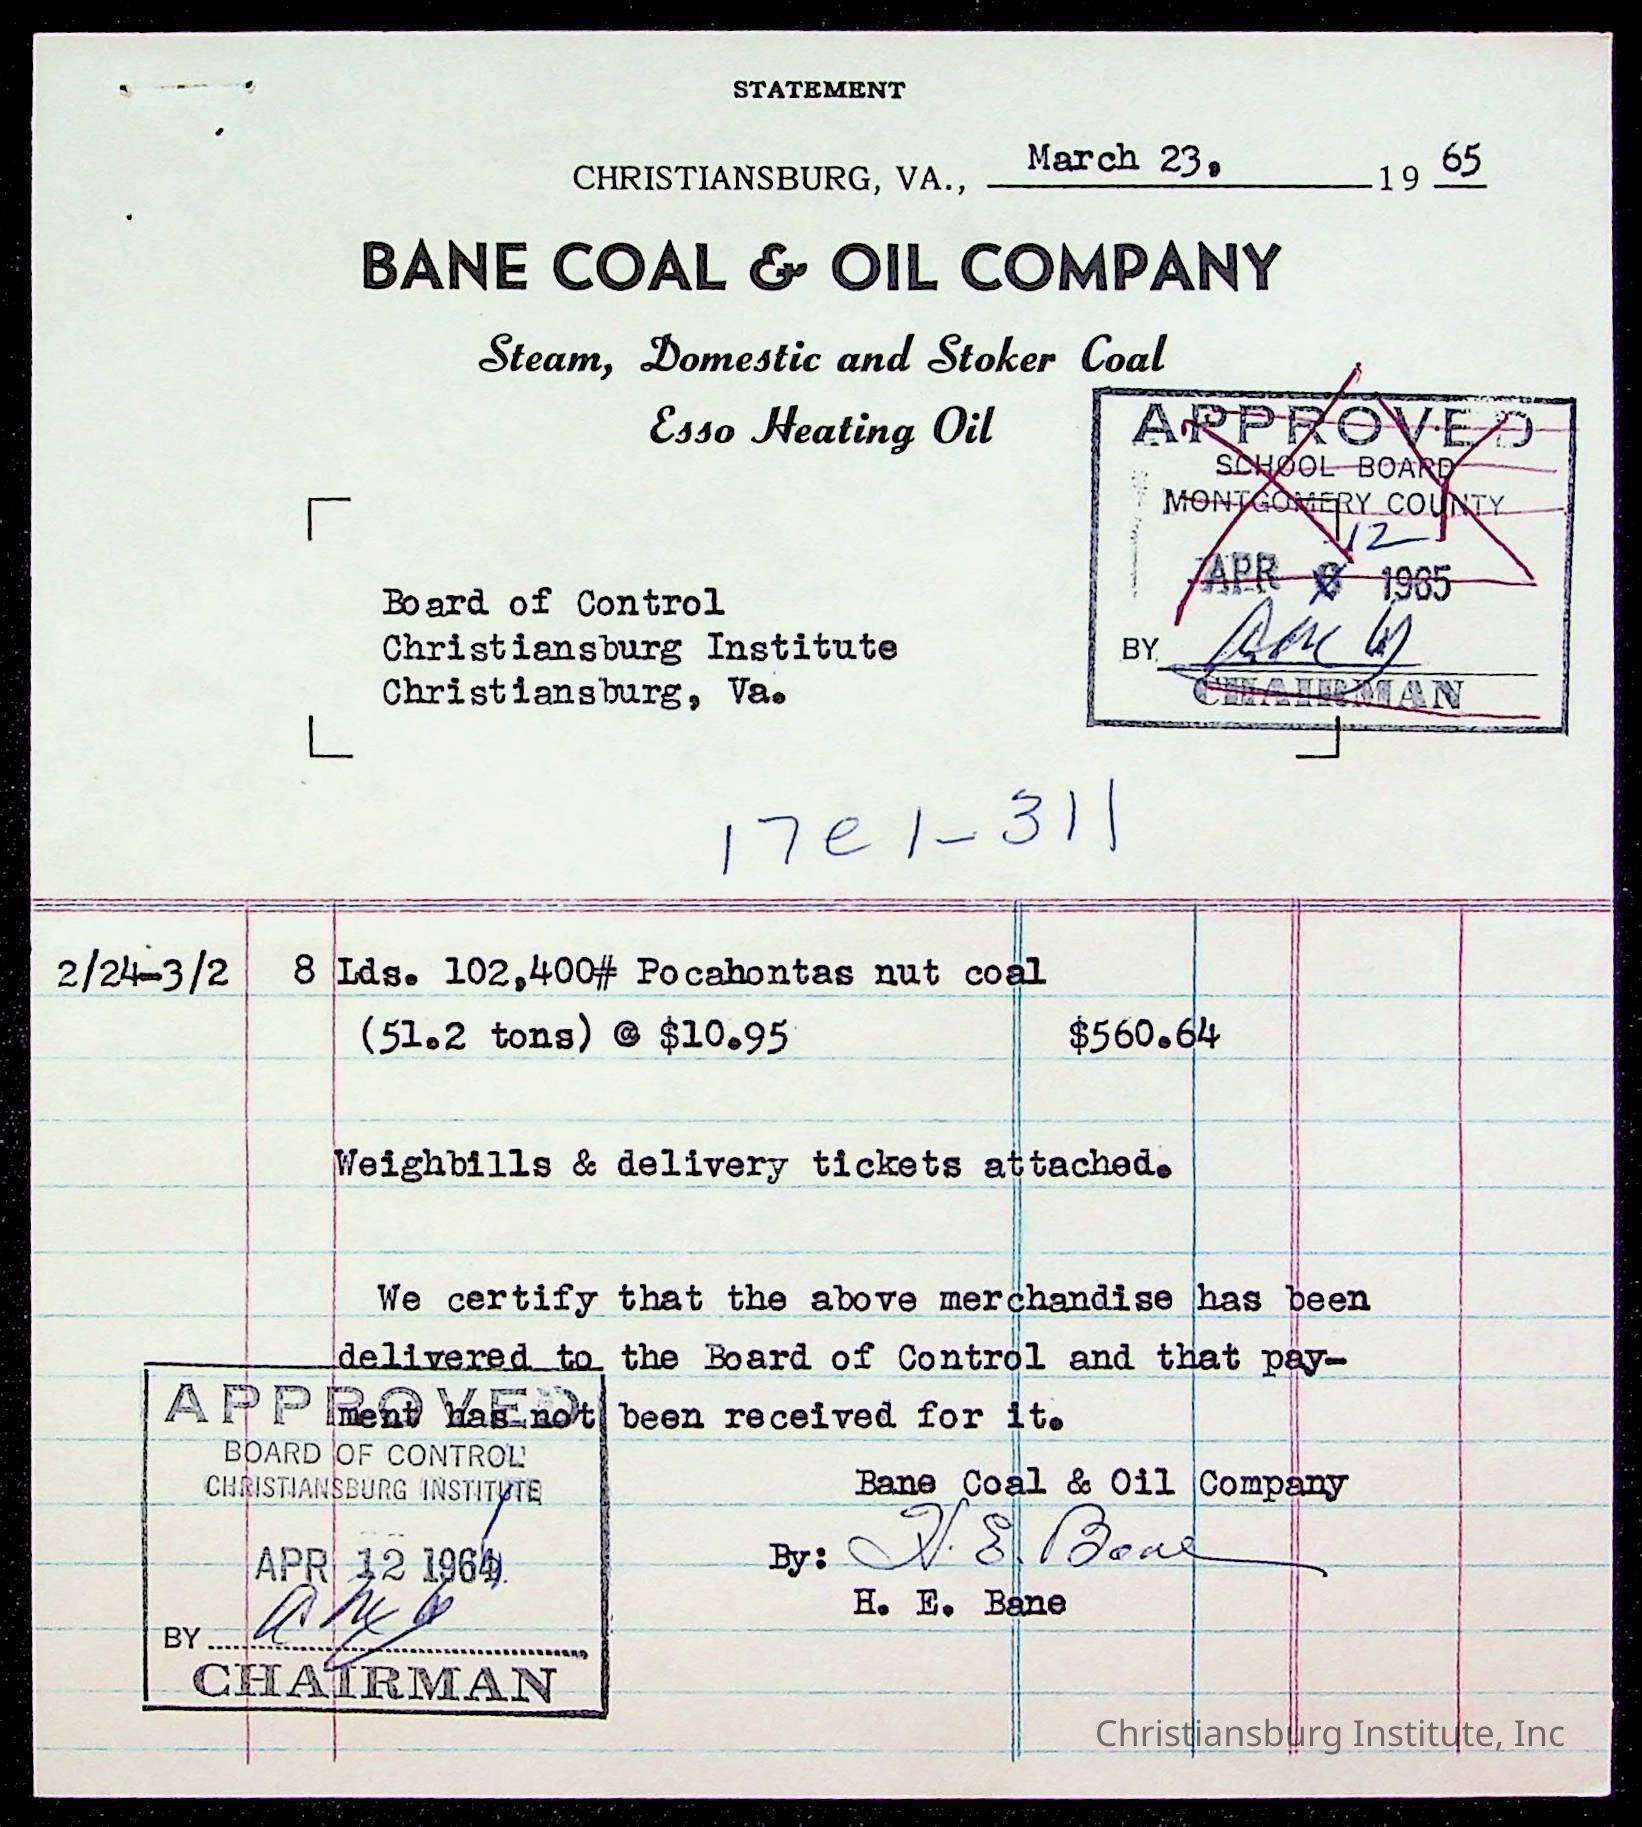 STATEMENT
CHRISTIANSBURG, VA., March 23, 19 65
BANE COAL & OIL COMPANY
Steam, Domestic and Stoker Coal
Esso Heating Oil
APPROVED
SCHOOL BOARD
MONTGOMERY COUNTY
12
APR 1965
BY
CHAIRMAN
Board of Control
Christiansburg Institute
Christiansburg, Va.
17e1-311
2/24-3/2 8 Lds. 102,400# Pocahontas nut coal
(51.2 tons) @ $10.95 $560.64
Weighbills & delivery tickets attached.
We certify that the above merchandise has been
delivered to the Board of Control and that pay-
ment has not been received for it.
APPROVED
BOARD OF CONTROL
CHRISTIANSBURG INSTITUTE
APR 12 1964
BY
CHAIRMAN
Bane Coal & Oil Company
By: H. E. Bane
H. E. Bane
Christiansburg Institute, Inc